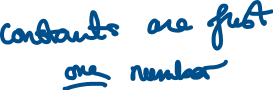 constants are just
one number